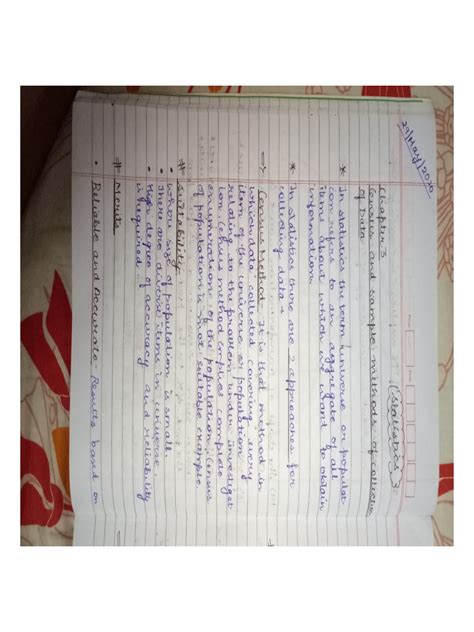 29/May/2020
(Statistics 3)
Chapter 3
Census and Sample methods of collection
of Data
* In statistics the term universe or populat-
ion refers to an aggregate of all
item about which we want to obtain
information.
* In statistics there are 2 approaches for
collecting data →
⇒ Census Method - It is that method in
which data collected covering every
item of the universe or population
relating to the problem under investigat
ion. Census method implies complete
enumeration of the population. Census
of population is
suitable example.
# Suitability
• Where size of population is small
• There are diverse items in universe.
• High degree of accuracy and reliability
is required.
# Merits
• Reliable and Accurate - Results based on